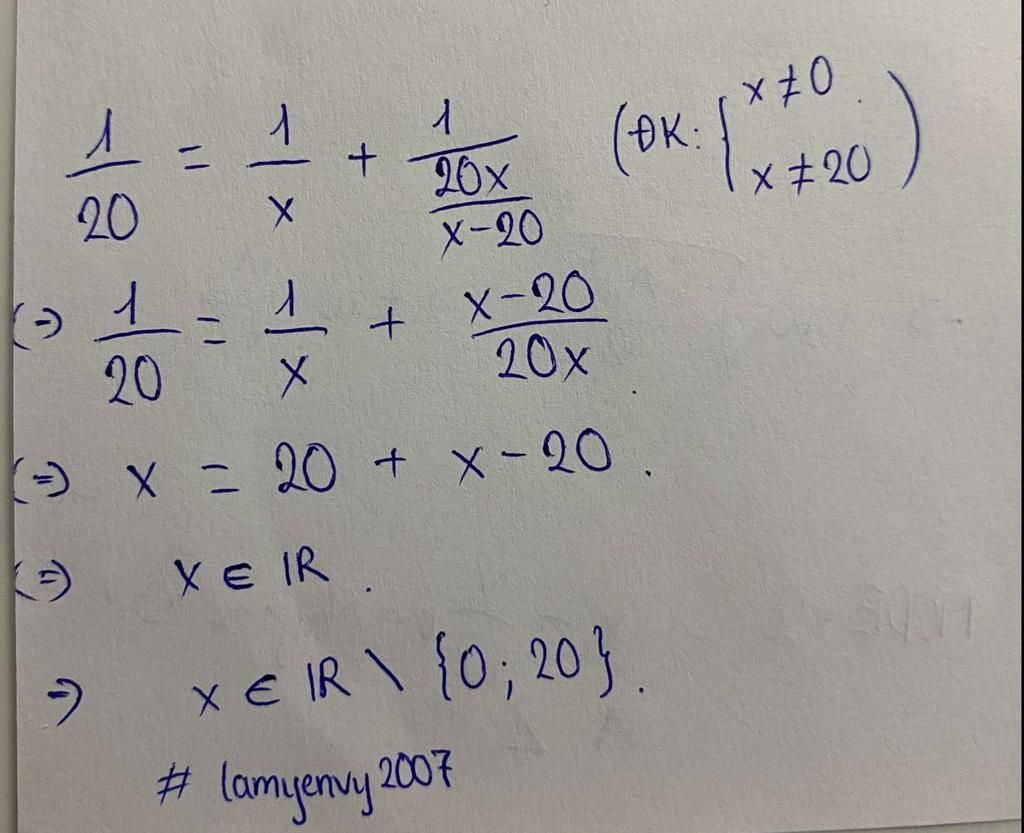 1/20 = 1/x + 1/(20x/(x-20)) (ĐK: { x ≠ 0 x ≠ 20 )
(=) 1/20 = 1/x + (x-20)/20x .
(=) x = 20 + x - 20 .
(=) x ∈ IR .
=) x ∈ IR \ {0; 20} .
# lamyenvy2007